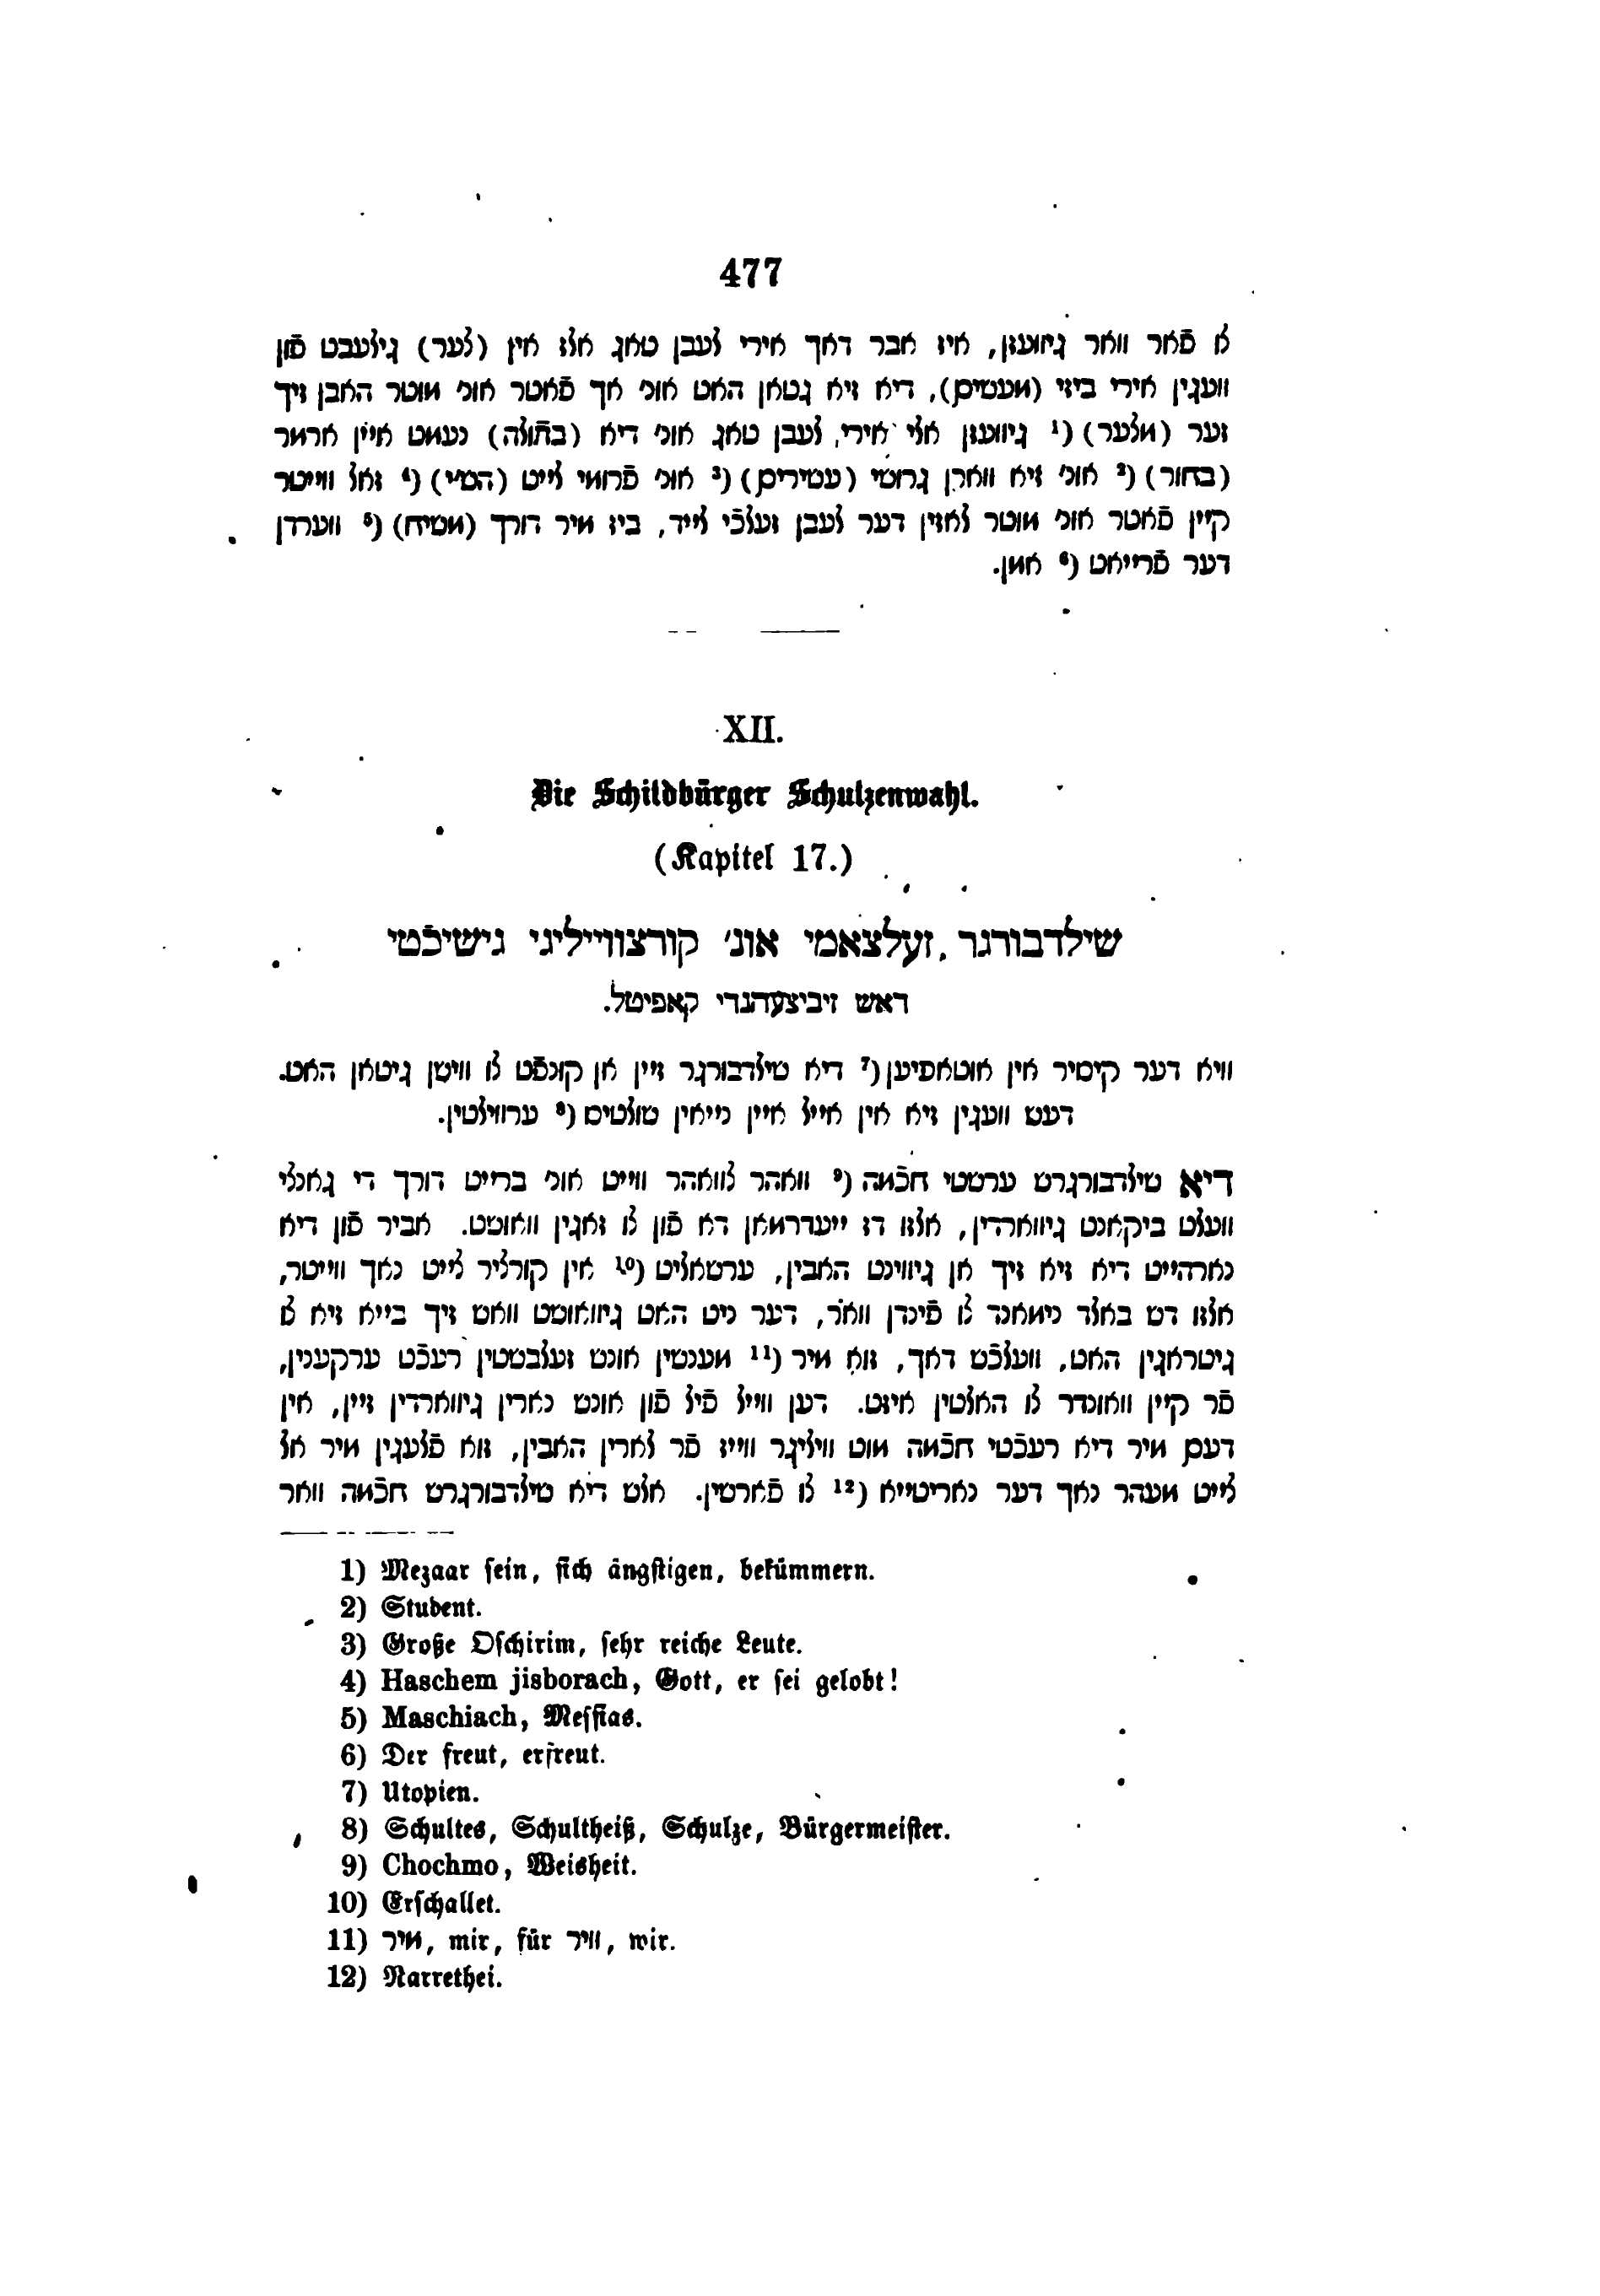 477
צו פֿאר וואר גיוועזן, איז אבר דאך אירי לעבן טאג אלז אין (צער) גילעבט פֿון
וועגין אירי ביזי (מעשים), דיא זיא גטאן האט אונ׳ אך פֿאטר אונ׳ מוטר האבן זיך
זער (מצער) (¹ גיוועזן אלי אירי לעבן טאג אונ׳ דיא (בתולה) נעמט איין ארמר
(בחור) (² אונ׳ זיא ווארן גרושי (עשירים) (³ אונ׳ פֿרומי לייט (הש״י) (⁴ זאל ווייטר
קיין פֿאטר אונ׳ מוטר לאזין דער לעבן זעלכֿי לייד, ביז מיר דורך (משיח) (⁵ ווערדן
דער פֿרייאט (⁶ אמן.
XII.
Die Schildbürger Schulzenwahl.
(Kapitel 17.)
שילדבורגר זעלצאמי אונ׳ קורצווייליגי גישיכֿטי
דאש זיביצעהנדי קאפיטל.
וויא דער קיסיר אין אוטאפיען (⁷ דיא שילדבורגר זיין אן קונפֿט צו ווישן גיטאן האט.
דעש וועגין זיא אין אייל איין נייאין שולטיס (⁸ ערווילטין.
דיא שילדבורגרש ערשטי חכֿמה (⁹ וואהר צוואהר ווייט אונ׳ ברייט דורך די גאנצי
וועלט ביקאנט גיווארדין, אלזו דז יעדרמאן דא פֿון צו זאגין וואושט. אביר פֿון דיא
נארהייט דיא זיא זיך אן גיווינט האבין, ערשאליט (¹⁰ אין קורציר צייט נאך ווייטר,
אלזו דש באלד נימאנד צו פֿינדן וואר, דער ניט האט גיוואושט וואש זיך בייא זיא צו
גיטראגין האט, וועלכֿש דאך, זוא מיר (¹¹ מענשין אונש זעלבשטין רעכֿט ערקענין,
פֿר קיין וואונדר צו האלטין איזט. דען ווייל פֿיל פֿון אונש נארין גיווארדין זיין, אין
דעם מיר דיא רעכֿטי חכֿמה מוט וויליגר ווייז פֿר לארין האבין, זוא פֿלעגין מיר אל
צייט מעהר נאך דער נאריטייא (¹² צו פֿארשין. אלש דיא שילדבורגרש חכֿמה וואר
1) Mezaar sein, sich ängstigen, bekümmern.
2) Student.
3) Große Oschirim, sehr reiche Leute.
4) Haschem jisborach, Gott, er sei gelobt!
5) Maschiach, Messias.
6) Der freut, erfreut.
7) Utopien.
8) Schultes, Schultheiß, Schulze, Bürgermeister.
9) Chochmo, Weisheit.
10) Erschallet.
11) מיר, mir, für וויר, wir.
12) Narrethei.